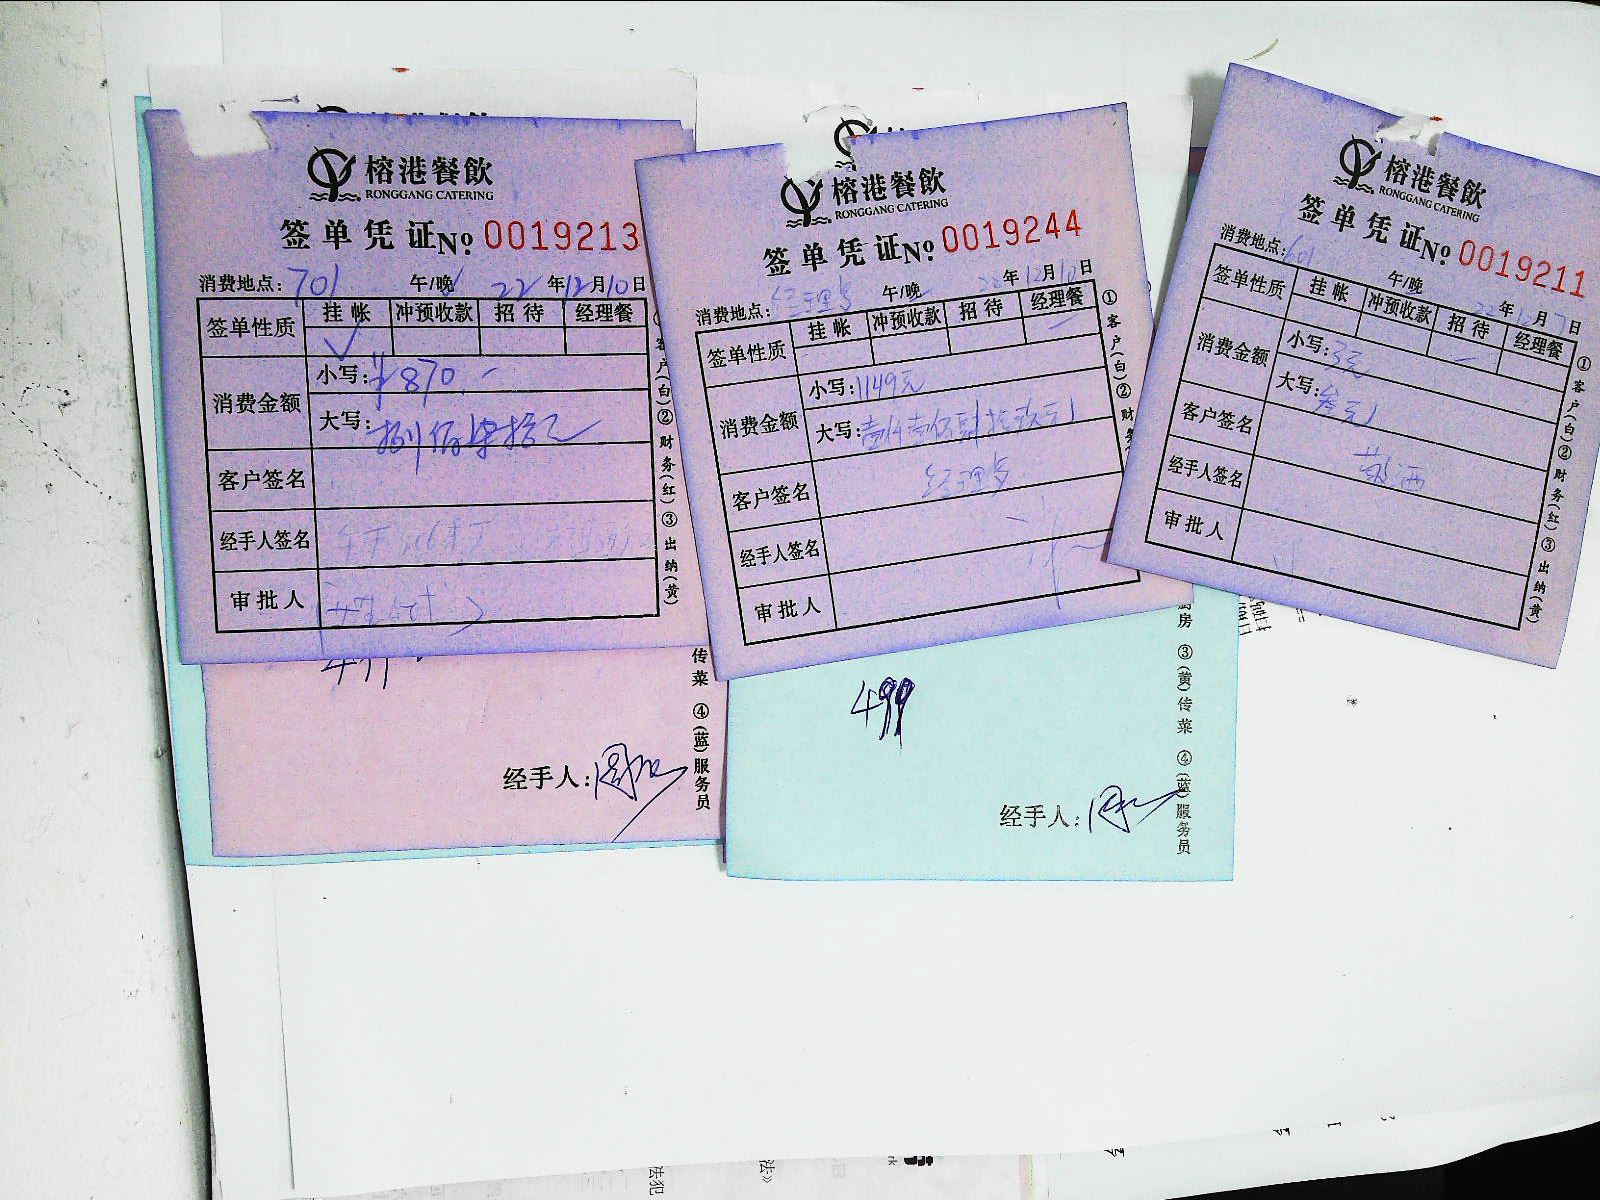 榕港餐飲
RONGGANG CATERING
签单凭证№ 0019213
消费地点: 701 午/晚 22年12月10日
签单性质 挂帐 冲预收款 招待 经理餐
消费金额 小写: ¥870.-
大写: 捌佰柒拾元
客户签名
经手人签名
审批人
①客户(白)②财务(红)③出纳(黄)
经手人:
传菜 ④(蓝)服务员
榕港餐飲
RONGGANG CATERING
签单凭证№ 0019244
消费地点: 经理 午/晚 22年12月10日
签单性质 挂帐 冲预收款 招待 经理餐
消费金额 小写: 1149元
大写: 壹仟壹佰肆拾玖元
客户签名 经理
经手人签名
审批人
①客户(白)②财务
499
经手人:
房 ③(黄)传菜 ④(蓝)服务员
榕港餐飲
RONGGANG CATERING
签单凭证№ 0019211
消费地点: 601 午/晚 22年12月7日
签单性质 挂帐 冲预收款 招待 经理餐
消费金额 小写: 3元
大写: 叁元
客户签名
经手人签名
审批人
①客户(白)②财务(红)③出纳(黄)